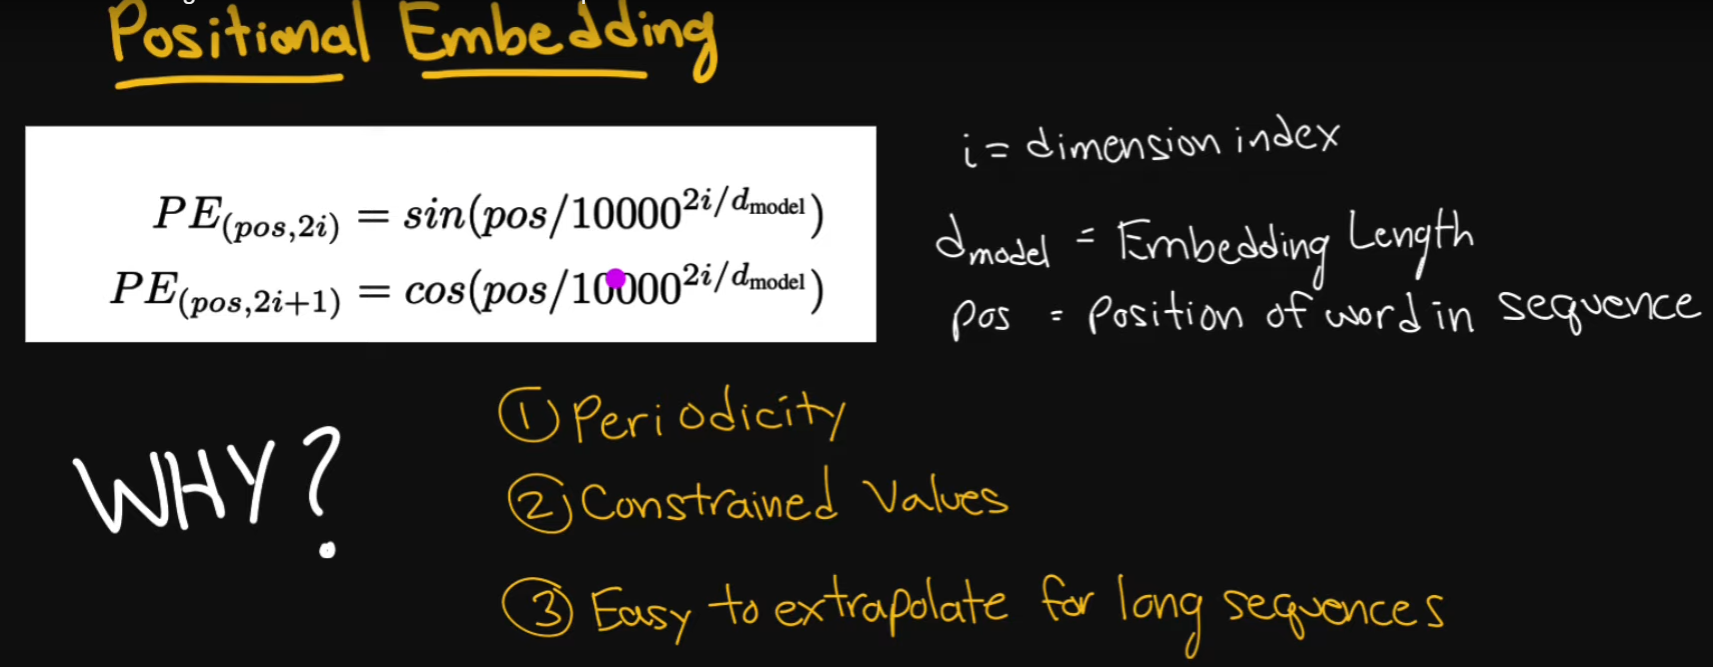 Positional Embedding
PE(pos,2i) = sin(pos/10000^2i/dmodel)
PE(pos,2i+1) = cos(pos/10000^2i/dmodel)
i = dimension index
dmodel = Embedding Length
pos = Position of word in sequence
WHY?
① Periodicity
② Constrained Values
③ Easy to extrapolate for long sequences